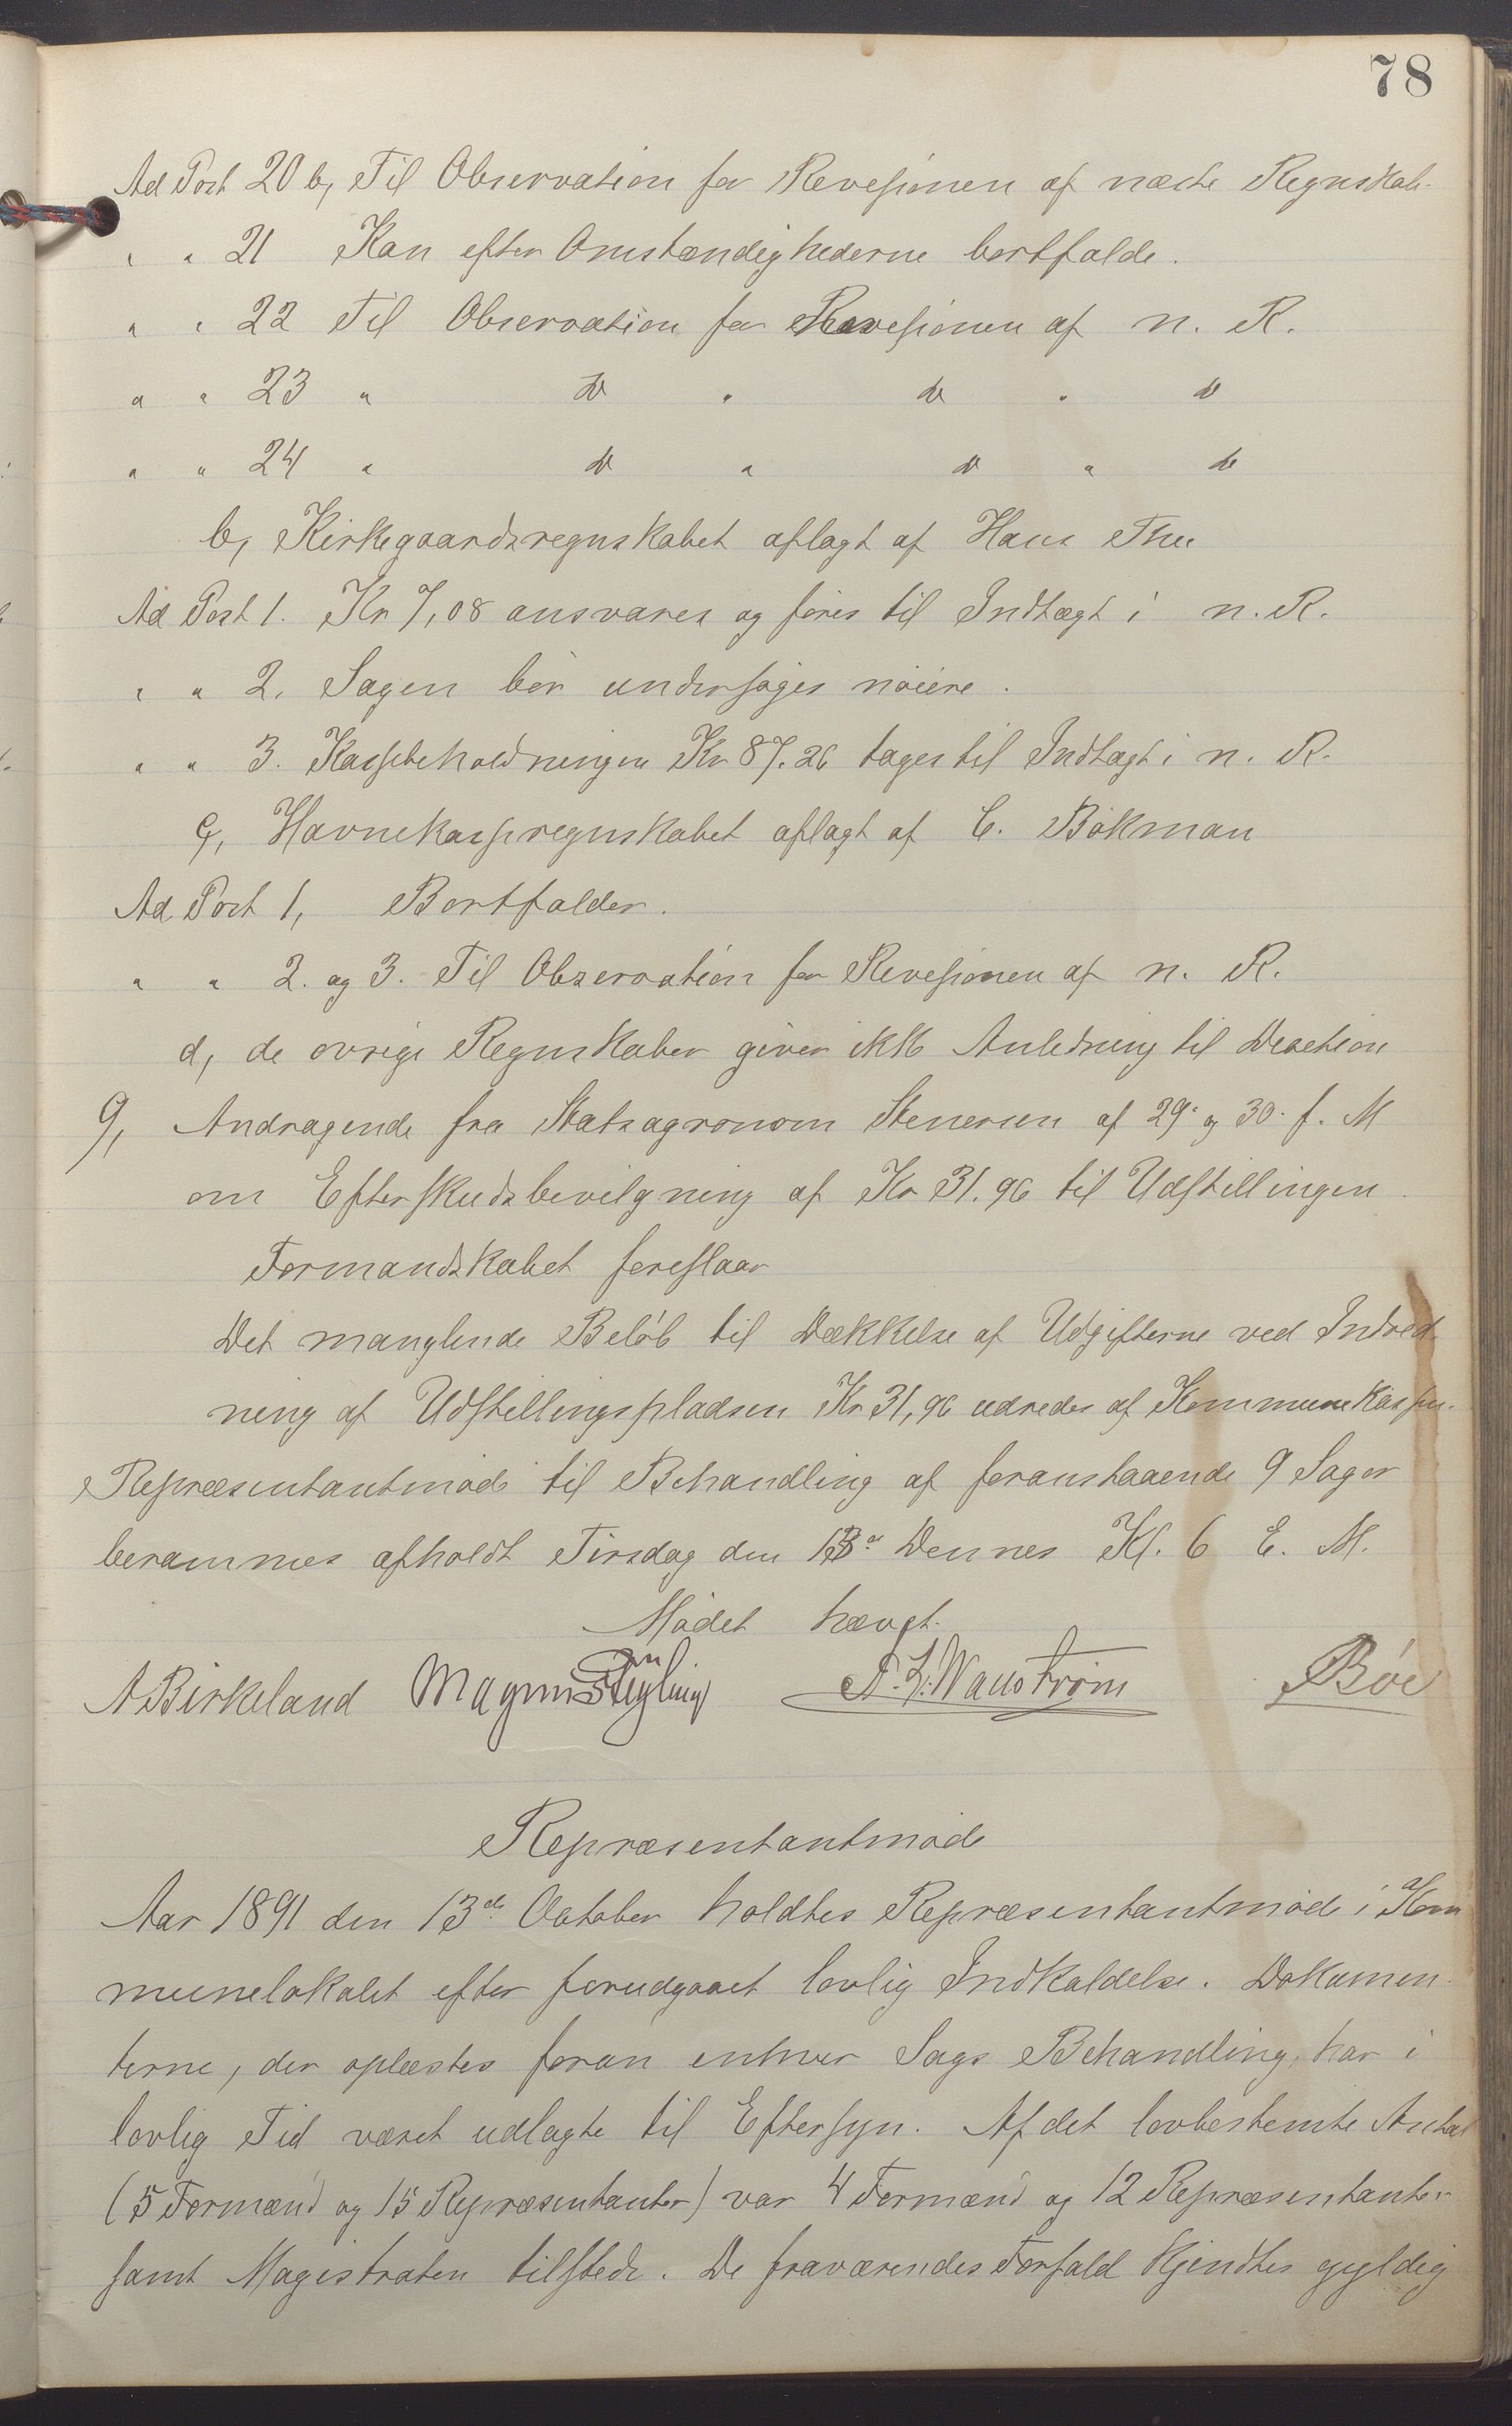 78
Ad Post 20 b, Til Observation for Revisionen af næste Regnskab.
" " 21 Kan efter Omstændighederne bortfalde.
" " 22 Til Observation for Revisionen af n. R.
" " 23 " do " do " do
" " 24 " do " do " do
b, Kirkegaardsregnskabet aflagt af Hans Thu
Ad Post 1. Kr 7,08 ansvares og føres til Indtægt i n. R.
" " 2, Sagen bør undersøges nøiere.
" " 3. Kassebeholdningen Kr 87.26 tages til Indtægt i n. R.
c, Havnekasseregnskabet aflagt af C. Bökman
Ad Post 1, Bortfalder.
" " 2. og 3. Til Observation for Revisionen af n. R.
d, de øvrige Regnskaber giver ikke Anledning til Desetion
9, Andragende fra Statsagronom Stenersen af 29. og 30. f. M
om Efterskudsbevilgning af Kr 31.96 til Udstillingen.
Formandskabet foreslaar
Det manglende Beløb til Dækkelse af Udgifterne ved Indred
ning af Udstillingspladsen Kr 31,96 udredes af Kommunekassen.
Repræsentantmøde til Behandling af foranstaaende 9 Sager
berammes afholdt Tirsdag den 13de Dennes Kl. 6 E. M.
Mødet hævet.
A Birkeland Magnus A. L. Wanstrøm Bøe
Repræsentantmøde
Aar 1891 den 13de October holdtes Repræsentantmøde i Kom
munelokalet efter forudgaaet lovlig Indkaldelse. Dokumen
terne, der oplæstes foran enhver Sags Behandling, har i
lovlig Tid været udlagte til Eftersyn. Af det lovbestemte Antal
(5 Formænd og 15 Repræsentanter) var 4 Formænd og 12 Repræsentanter
samt Magistraten tilstede. De fraværendes Forfald kjendtes gyldig